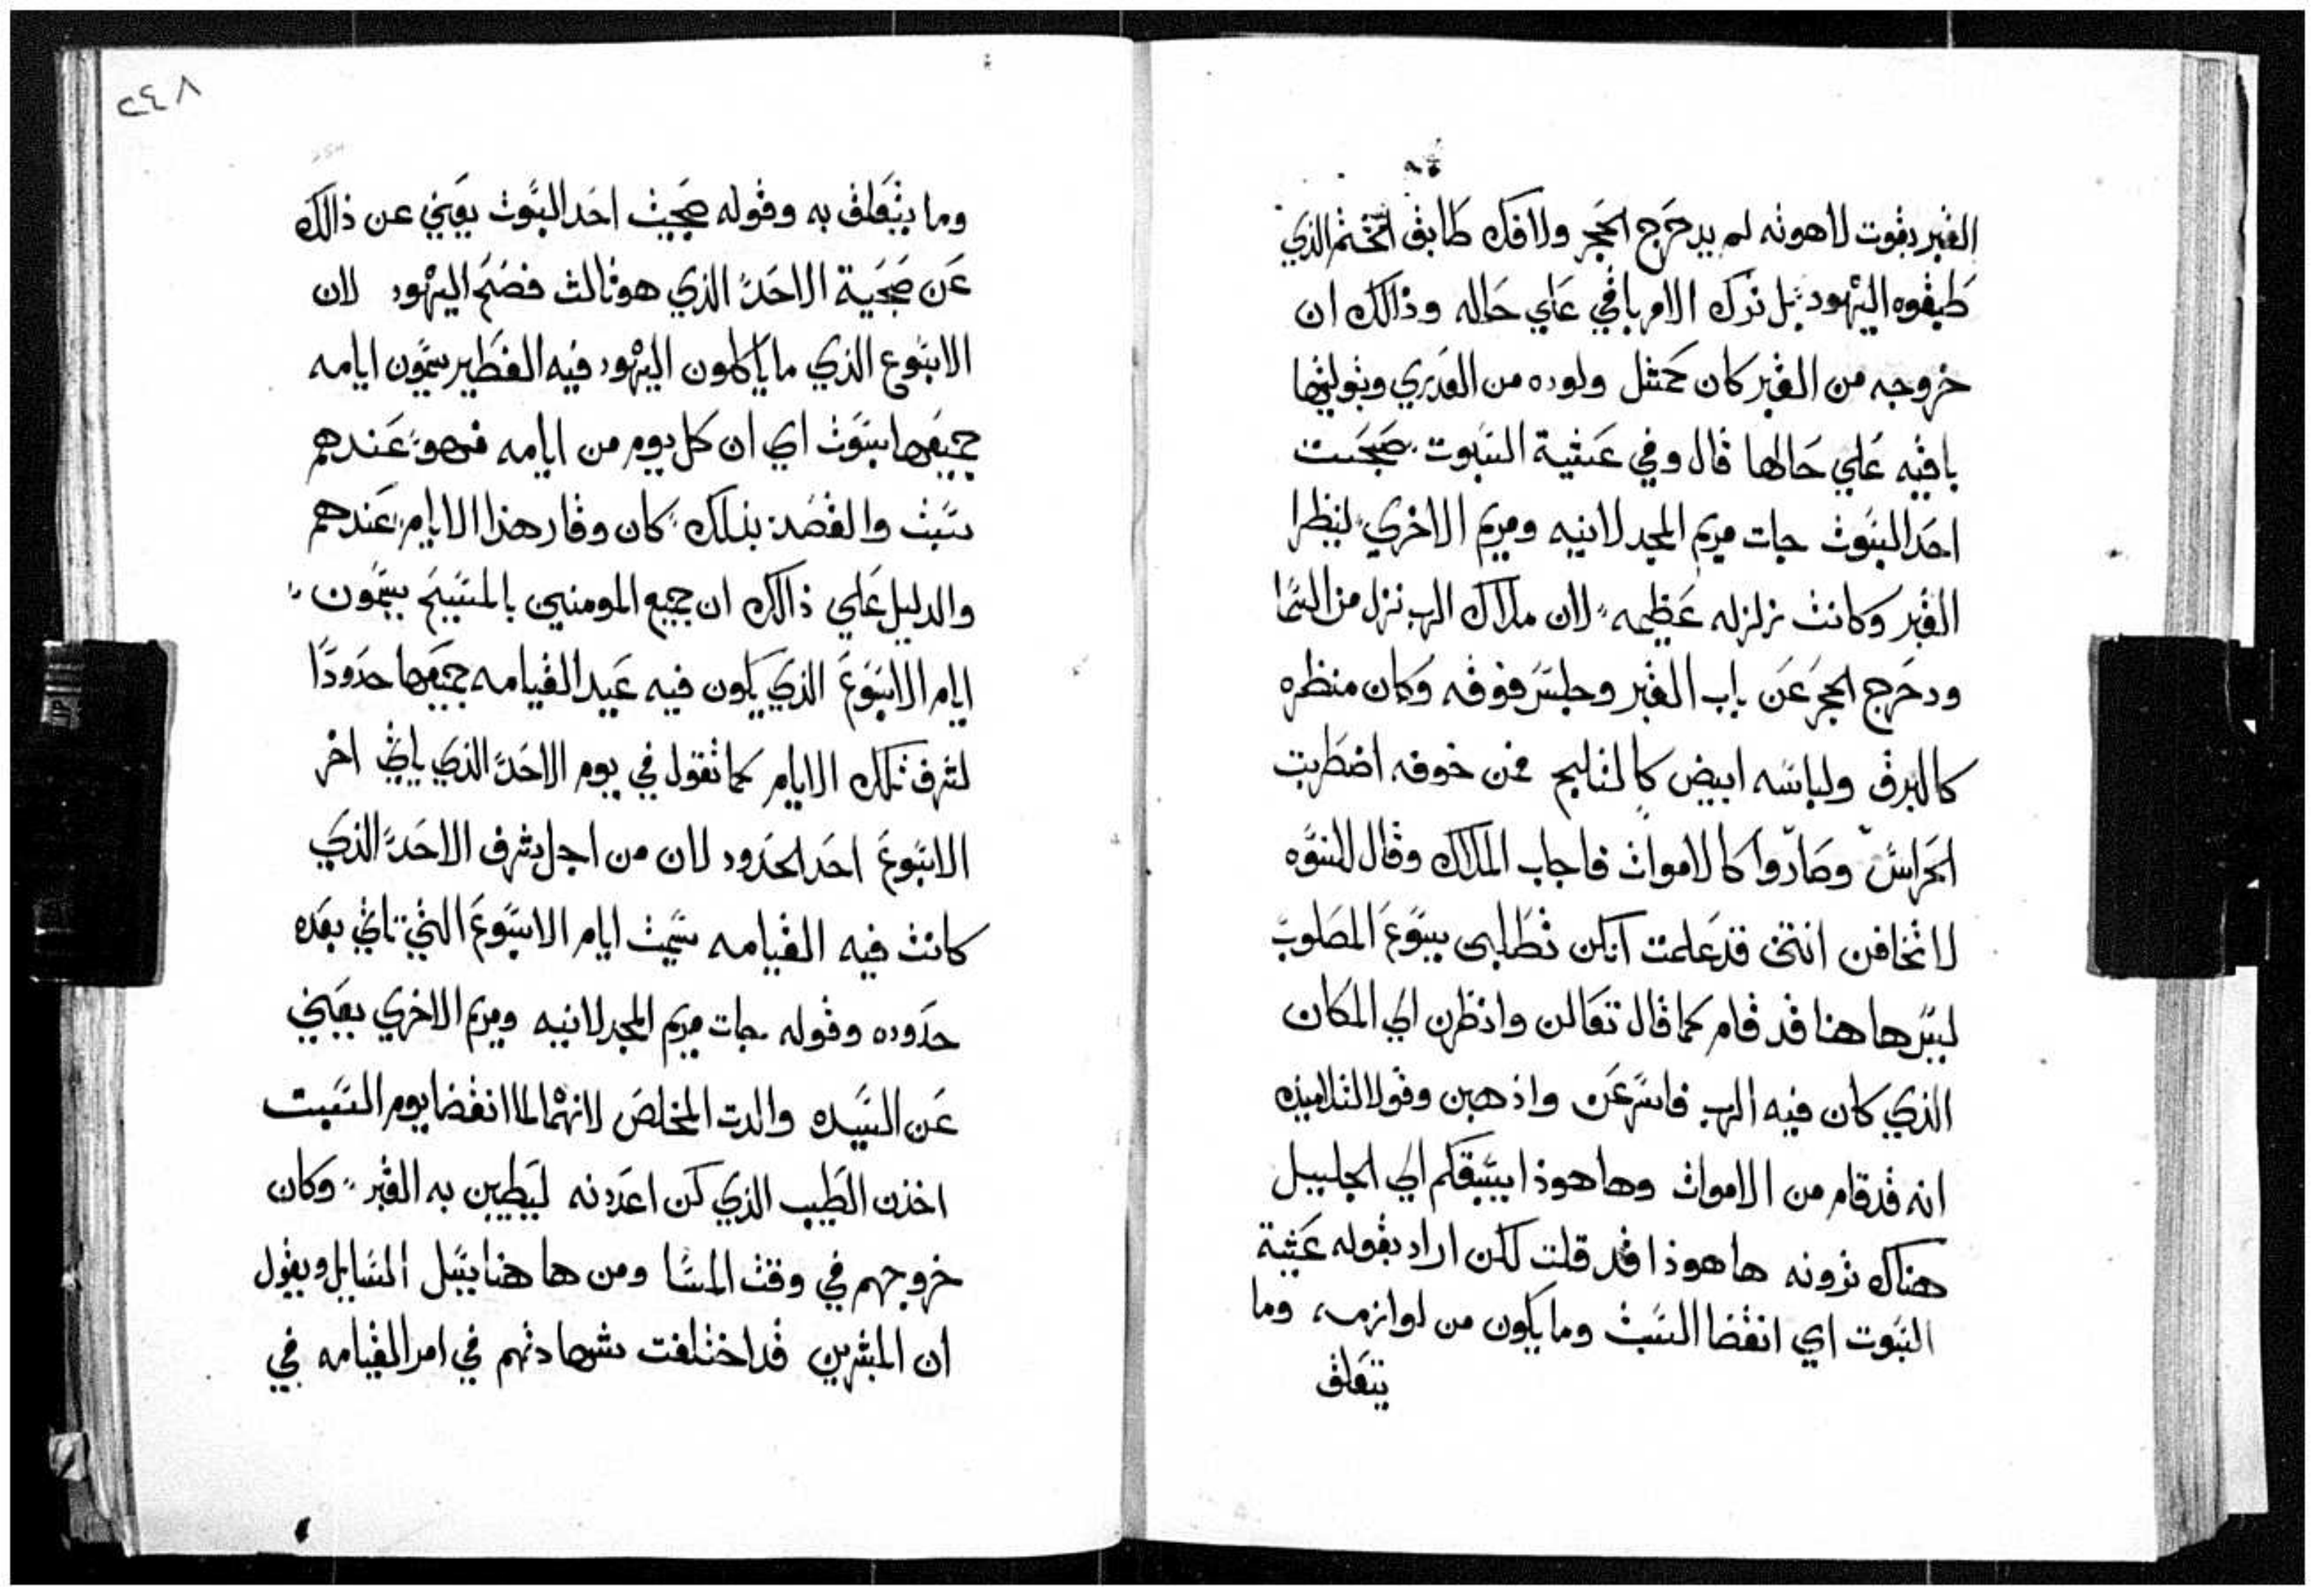 القبر بقوت لاهوته لم يدحرج الحجر ولا فك طابق الختم الذي
طبقوه اليهود بل ترك الامر باقي علي حاله وذالك ان
خروجه من القبر كان كمثل ولوده من العدري وبتوليتها
باقيه علي حالها قال وفي عشية السبوت صبحت
احد السبوت جات مريم المجدلانيه ومريم الاخري لينظرا
القبر وكانت زلزله عظيمه لان ملاك الرب نزل من السما
ودحرج الحجر عن باب القبر وجلس فوقه وكان منظره
كالبرق ولباسه ابيض كالثلج فمن خوفه اضطربت
الحراس وصاروا كالاموات فاجاب الملاك وقال للنسوه
لا تخافن انتن قد علمت انكن تطلبن يسوع المصلوب
ليس هاهنا قد قام كما قال تعالن وانظرن الي المكان
الذي كان فيه الرب فاسرعن واذهبن وقولا لتلاميذه
انه قد قام من الاموات وها هوذا يسبقكم الي الجليل
هناك ترونه ها هوذا قد قلت لكن اراد بقوله عشية
السبوت اي انقضا السبت وما يكون من لوازمه وما
يتعلق
٢٤٨
وما يتعلق به وقوله صبحيت احد السبوت يعني عن ذالك
عن صبحية الاحد الذي هو ثالث فصح اليهود لان
الاسبوع الذي ما ياكلون اليهود فيه الفطير يسمون ايامه
جميعها سبوت اي ان كل يوم من ايامه فهو عندهم
سبت والقصد بذلك كان وقار هذا الايام عندهم
والدليل علي ذالك ان جميع المومنين بالمسيح يسمون
ايام الاسبوع الذي يكون فيه عيد القيامه جميعها حدودا
لشرف تلك الايام كما تقول في يوم الاحد الذي ياتي اخر
الاسبوع احد الحدود لان من اجل شرف الاحد الذي
كانت فيه القيامه سميت ايام الاسبوع التي تاتي بعده
حدوده وقوله جات مريم المجدلانيه ومريم الاخري يعني
عن السيده والدت المخلص لانهما لما انقضا يوم السبت
اخذن الطيب الذي كن اعددنه ليطيبن به القبر وكان
خروجهم في وقت المسا ومن ها هنا يسل السايل ويقول
ان المبشرين قد اختلفت شهادتهم في امر القيامه في